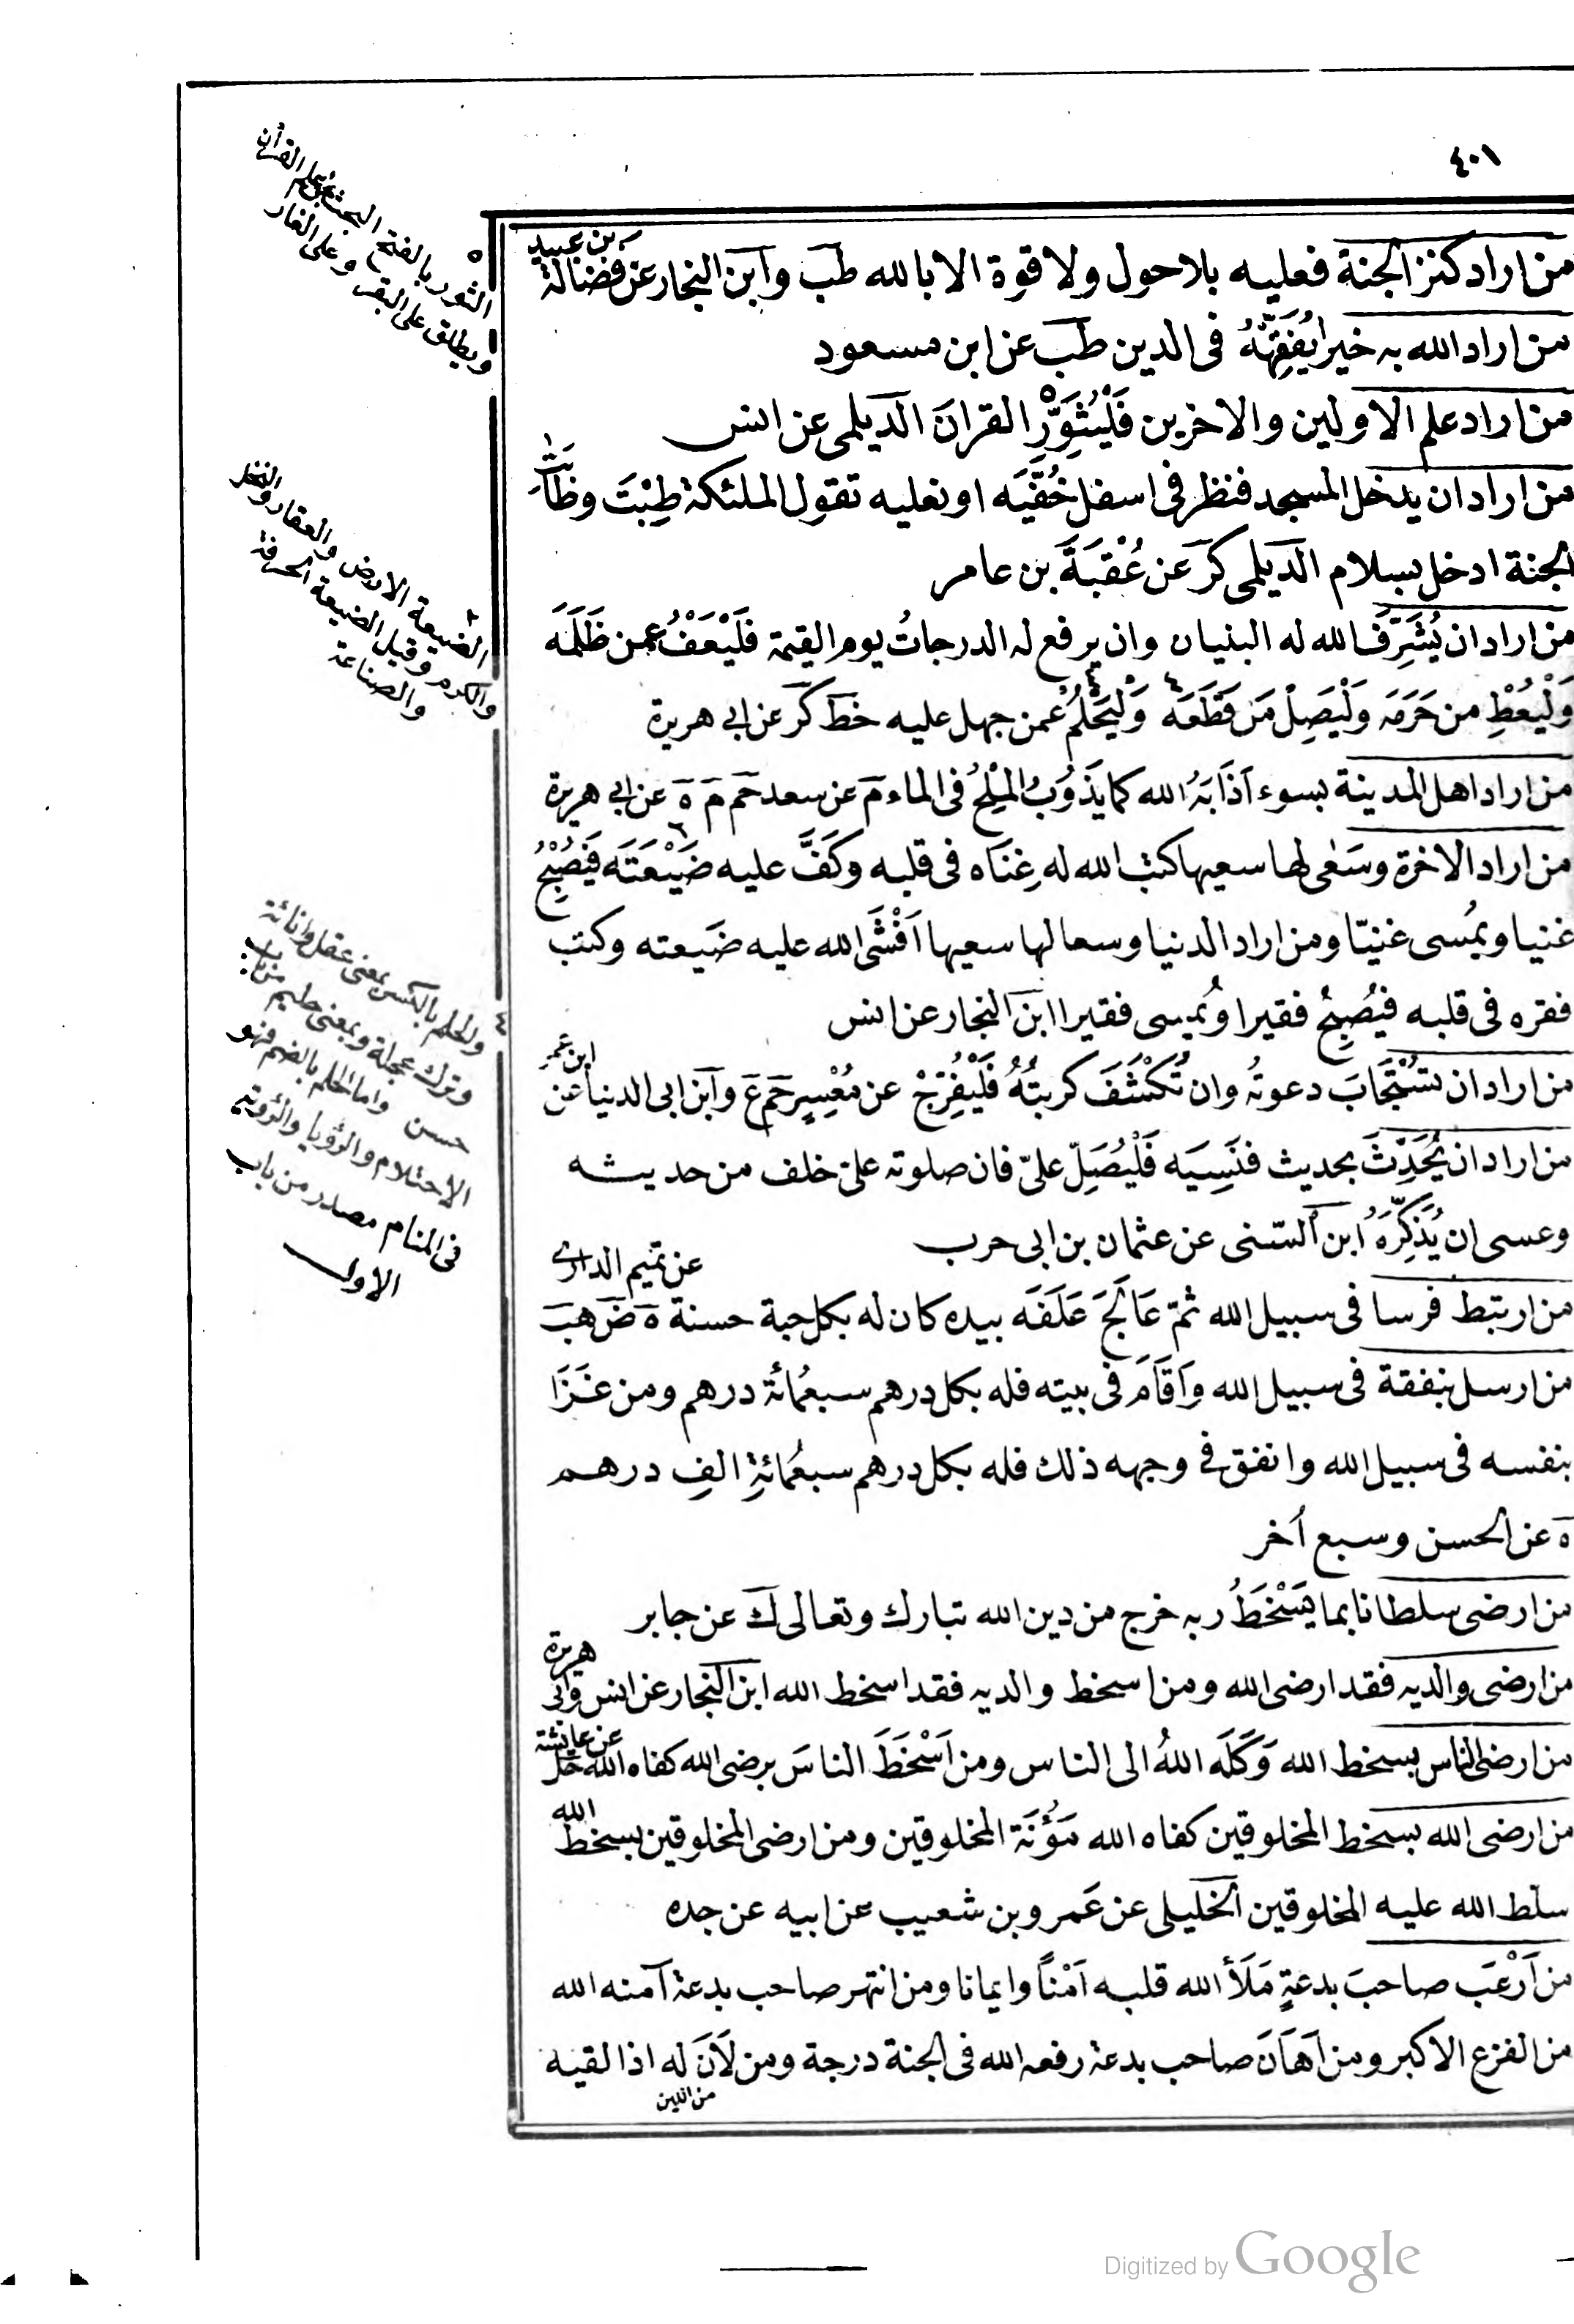 ٤٠١
من اراد كنز الجنة فعليه بلا حول ولا قوة الا بالله طب وابن النجار عن فضالة
بن عبيد
من اراد الله به خيرا يُفَقِّهْهُ فى الدين طب عن ابن مسعود
من اراد علم الاولين والاخرين فَلْيُثَوِّرِ القرانَ الديلمى عن انس
من اراد ان يدخل المسجد فنظر فى اسفل خُفَّيْه او نعليه تقول الملئكة طِبْتَ وطابَتْ
الجنة ادخل بسلام الديلمى كر عن عُقْبَةَ بن عامر
من اراد ان يُشَرِّفَ الله له البنيان وان يرفع له الدرجاتُ يوم القيمة فَلْيَعْفُ عمن ظَلَمَه
وَلْيُعْطِ من حَرَمَه وَلْيَصِلْ مَن قَطَعَه وَلْيَحْلُمْ عمن جهل عليه خط كر عن ابى هريرة
من اراد اهل المدينة بسوء اَذَابَهُ الله كما يَذُوبُ المِلْحُ فى الماء م عن سعد حم م ه عن ابى هريرة
من اراد الاخرة وسَعٰى لها سعيها كتب الله له غِنَاه فى قلبه وكَفَّ عليه ضَيْعَتَه فَيُصْبِحُ
غنيا ويُمسى غنيّا ومن اراد الدنيا وسعا لها سعيها اَفْشَى الله عليه ضَيعته وكتب
فقره فى قلبه فيُصبِحُ فقيرا ويُمسى فقيرا ابن النجار عن انس
من اراد ان تُسْتَجَابَ دعوتُه وان تُكْشَفَ كربتُهُ فَلْيُفَرِّجْ عن مُعْسِر حم ع وابن ابى الدنيا عن
ابن عمر
من اراد ان يُحَدِّثَ بحديث فنَسِيَه فَلْيُصَلِّ علىّ فان صلوته علىّ خلف من حديثه
وعسى ان يُذَكِّرَهُ ابن السنى عن عثمان بن ابى حرب
من ارتبط فرسا فى سبيل الله ثمّ عَالَجَ عَلَفَه بيده كان له بكل حبة حسنة ه ض هب
عن تميم الدارى
من ارسل بنفقة فى سبيل الله واَقَامَ فى بيته فله بكل درهم سبعُمائة درهم ومن غَزَا
بنفسه فى سبيل الله وانفق فى وجهه ذلك فله بكل درهم سبعُمائةِ الفِ درهم
ه عن الحسن وسبع اُخر
من ارضى سلطانا بما يَسْخَطُ ربه خرج من دين الله تبارك وتعالى ك عن جابر
من ارضى والديه فقد ارضى الله ومن اسخط والديه فقد اسخط الله ابن النجار عن انس وابى
هريرة
من ارضى الناس بسخط الله وَكَلَه اللهُ الى الناس ومن اَسْخَطَ الناسَ برضى الله كفاه الله حل
عن عايشة
من ارضى الله بسخط المخلوقين كفاه الله مَؤُنَةَ المخلوقين ومن ارضى المخلوقين بسخط
الله
سلّط الله عليه المخلوقين الخليلى عن عَمرو بن شعيب عن ابيه عن جده
من اَرْعَبَ صاحبَ بدعةٍ مَلَأَ الله قلبه اَمْناً وايمانا ومن انتهر صاحب بدعة آمنه الله
من الفزع الاكبر ومن اَهَانَ صاحب بدعة رفعه الله فى الجنة درجة ومن لَانَ له اذا لقيه
من اللين
الثور بالفتح البحث عن علم القرأن
ويطلق على البقر وعلى الغار
الضيعة الارض والعقار والنخل
والكرم وقيل الضيعة الحرفة
والصناعة
والحلم بالكسر بمعنى عقل وانائة
وترك عجلة وبمعنى حليم من باب
حسن واما الحلم بالضم فهو
الاحتلام والرؤيا والرؤية
فى المنام مصدر من باب
الاول
Digitized by Google